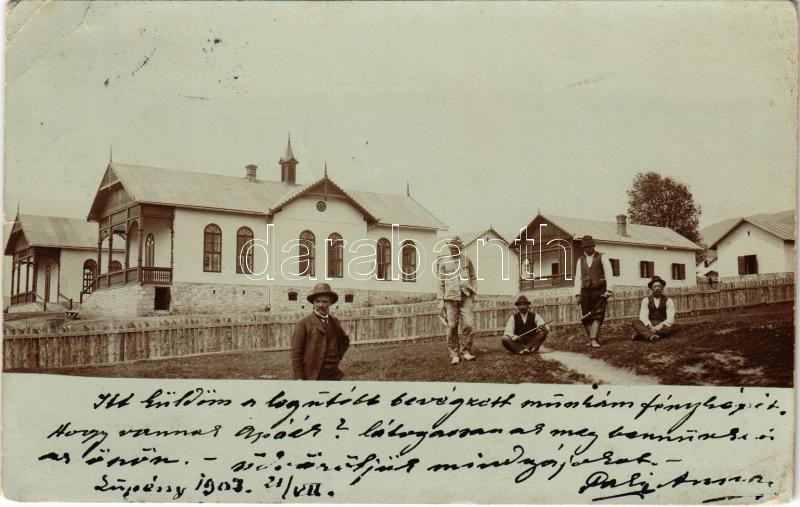 darabanth
Itt küldöm a legutóbb bevégzett munkám fényképét.
Hogy vannak Apáék? látogassanak meg bennünket is
az önön. – üdvözöljük mindnyájokat. –
Lupény 1903. 21/VII. Anna